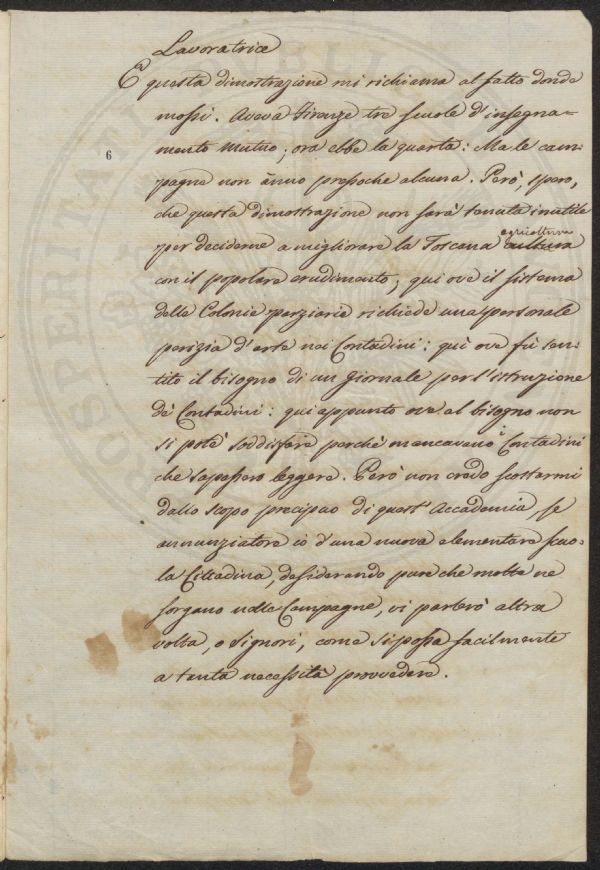 Lavoratrice
E questa dimostrazione mi richiama al fatto donde
mossi. Aveva Firenze tre scuole d'insegna=
mento mutuo; ora ebbe la quarta: Ma le cam=
6
pagne non ànno pressoche alcuna. Però, spero,
che questa dimostrazione non sarà tenuta inutile
agricoltura
per deciderne a migliorare la Toscana cultura
con il popolare erudimento; qui ove il sistema
delle Colonie parziarie richiede una personale
perizia d'arte nei Contadini: quì ove fù sen=
tito il bisogno di un Giornale per l'istruzione
de' Contadini: qui appunto ove al bisogno non
si potè soddisfare perchè mancavano i Contadini
che sapessero leggere. Però non credo scostarmi
dallo scopo precipuo di quest'Accademia, se
annunziatore io d'una nuova elementare scuo=
la Cittadina, desiderando pure che molte ne
sorgano nelle Campagne, vi parlerò altra
volta, o Signori, come si possa facilmente
a tanta necessità provvedere.
PROSPERITATI
PUBLI